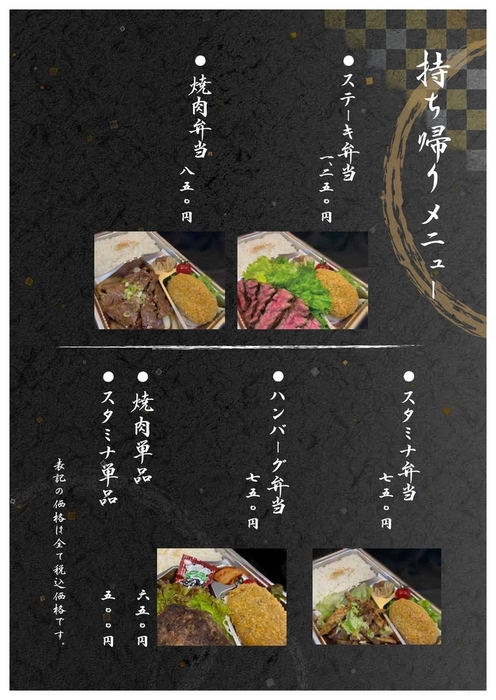 持ち帰りメニュー
●ステーキ弁当
一、二五〇円
●焼肉弁当
八五〇円
●スタミナ弁当
七五〇円
●ハンバーグ弁当
七五〇円
●焼肉単品
六五〇円
●スタミナ単品
五〇〇円
表記の価格は全て税込価格です。